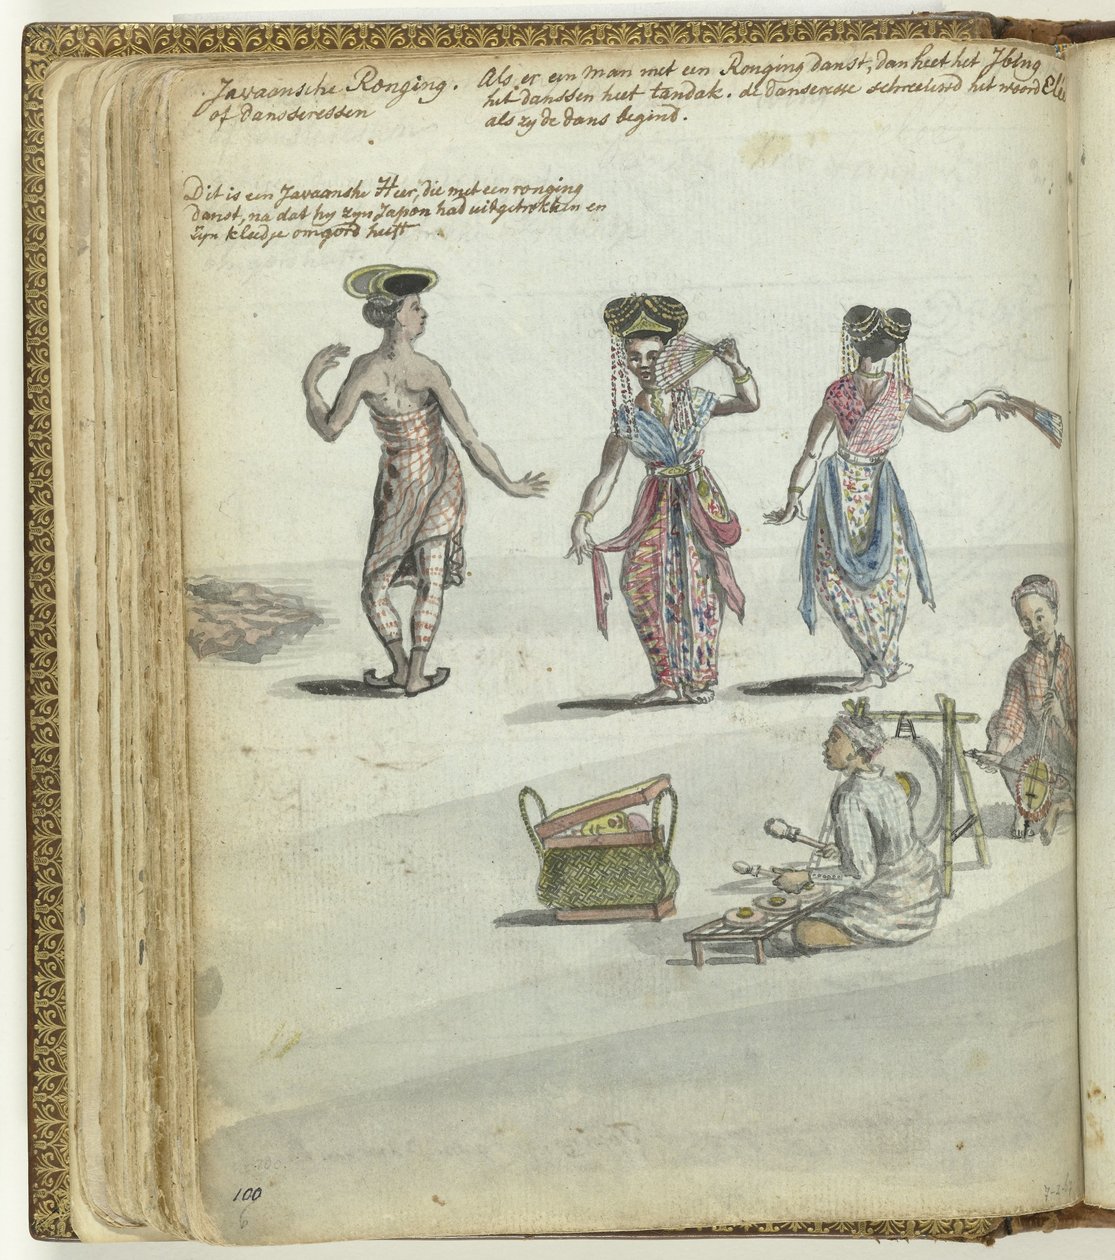 Javaansche Ronging.
of dansseressen
Als er een man met een Ronging danst, dan heet het Jbing
hit danssen heet tandak. de danseresse schreeuwd het woord
als zy de dans begind.
Dit is een Javaansche Heer, die met een ronging
danst, na dat hy zyn Japon had uitgetrokken en
zyn kleedje omgord heeft
100
6